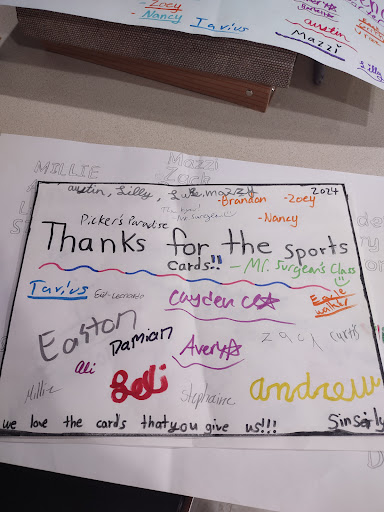 -Zoey
-Nancy
Tavius
austin
Mazzi
Lilly
MILLIE
Mazzi
Zack
austin, Lilly, Luke, mazzi
-Brandon
-Zoey
2024
-Nancy
Picker's Paradise
Thanks for the sports
cards!!
- Mr. Surgeon's Class
Tavius
Cayden C
Easton
Damian
Avery
zach
Curtis
Ali
Millie
Stephanie
andrew
we love the cards that you give us!!!
Sinserly